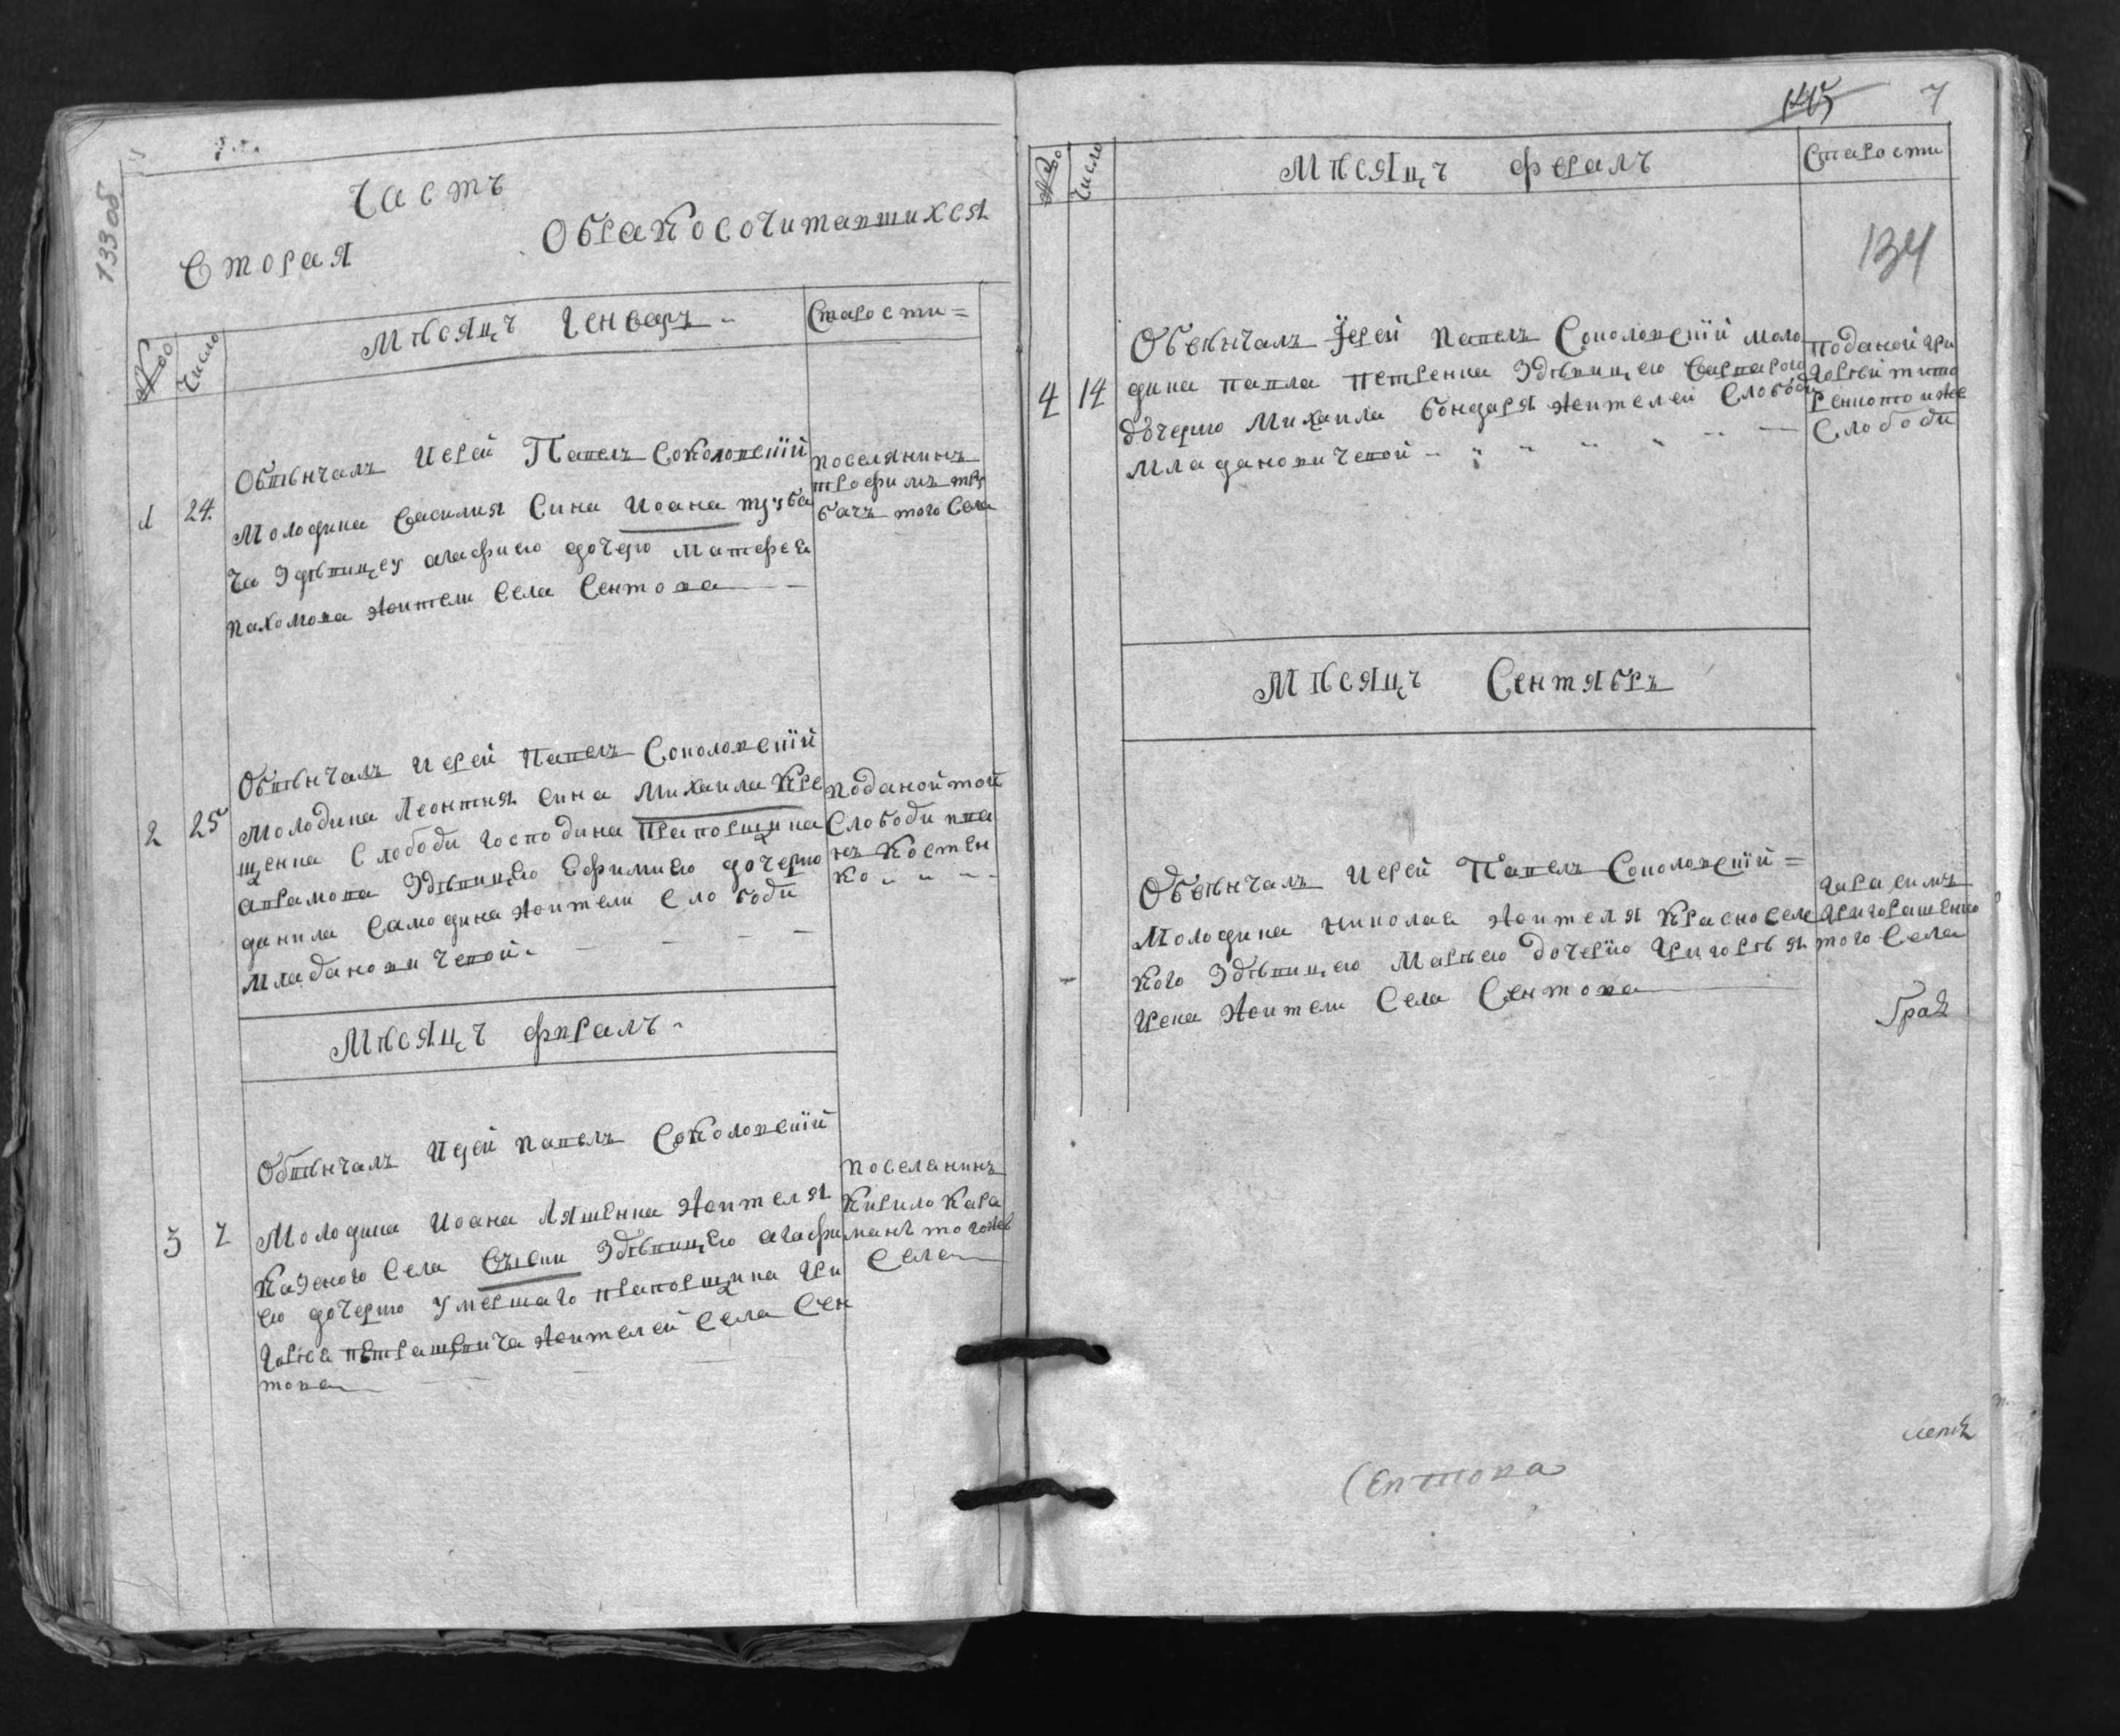 133об
Часть
Вторая Обракосочитавшихся
№ Число Мѣсяцъ Генварь Старости
1 24. Обвѣнчалъ Иерей Павелъ Соколовскій
Молодика Василия Сина Иоана труба
ча Здѣвицеу агафиею дочерю Матфея
пахомова жители Села Сентова
поселянинъ
трофимъ тру
бачъ того Села
2 25 Обвѣнчалъ Иерей Павелъ Соколовскій
Молодика Леонтия сина Михаила Кре
щенка Слободи господина Прапорщика
аврамова Здѣвицею Ефимиею дочерю
данила Самодина жители слободи
Младановичевой
поданой той
Слободи ива
нъ Костен
ко
Мѣсяцъ февралъ
3 7 Обвѣнчалъ Иерей павелъ Соколовскій
Молодика Иоана Ляшенка жителя
Казеного Села Здѣвицею агафи
ею дочерю умершаго прапорщика Гри
горіея петрашевича жителей Села Сен
това
поселенинъ
Кирило Кара
манъ тогожѣ
Села
145 7
№ Число Мѣсяцъ фералъ Старости
134
4 14 Обвѣнчалъ Іерей Павелъ Соколовскій моло
дика павла петренка Здѣвицею варварою
дочерю Михаила бондаря жителей Слободи
Младановичевой
поданой гри
горѣй тито
ренко тоижѣ
Слободи
Мѣсяцъ Сентябръ
Обвѣнчалъ Иерей Павелъ Соколовскій
Молодика николае жителя Красноселс
кого Здѣвицею Марѣею дочерїю Григорѣя
жители Села Сентова
гарасимъ
григорашенко
того Села
Сентова